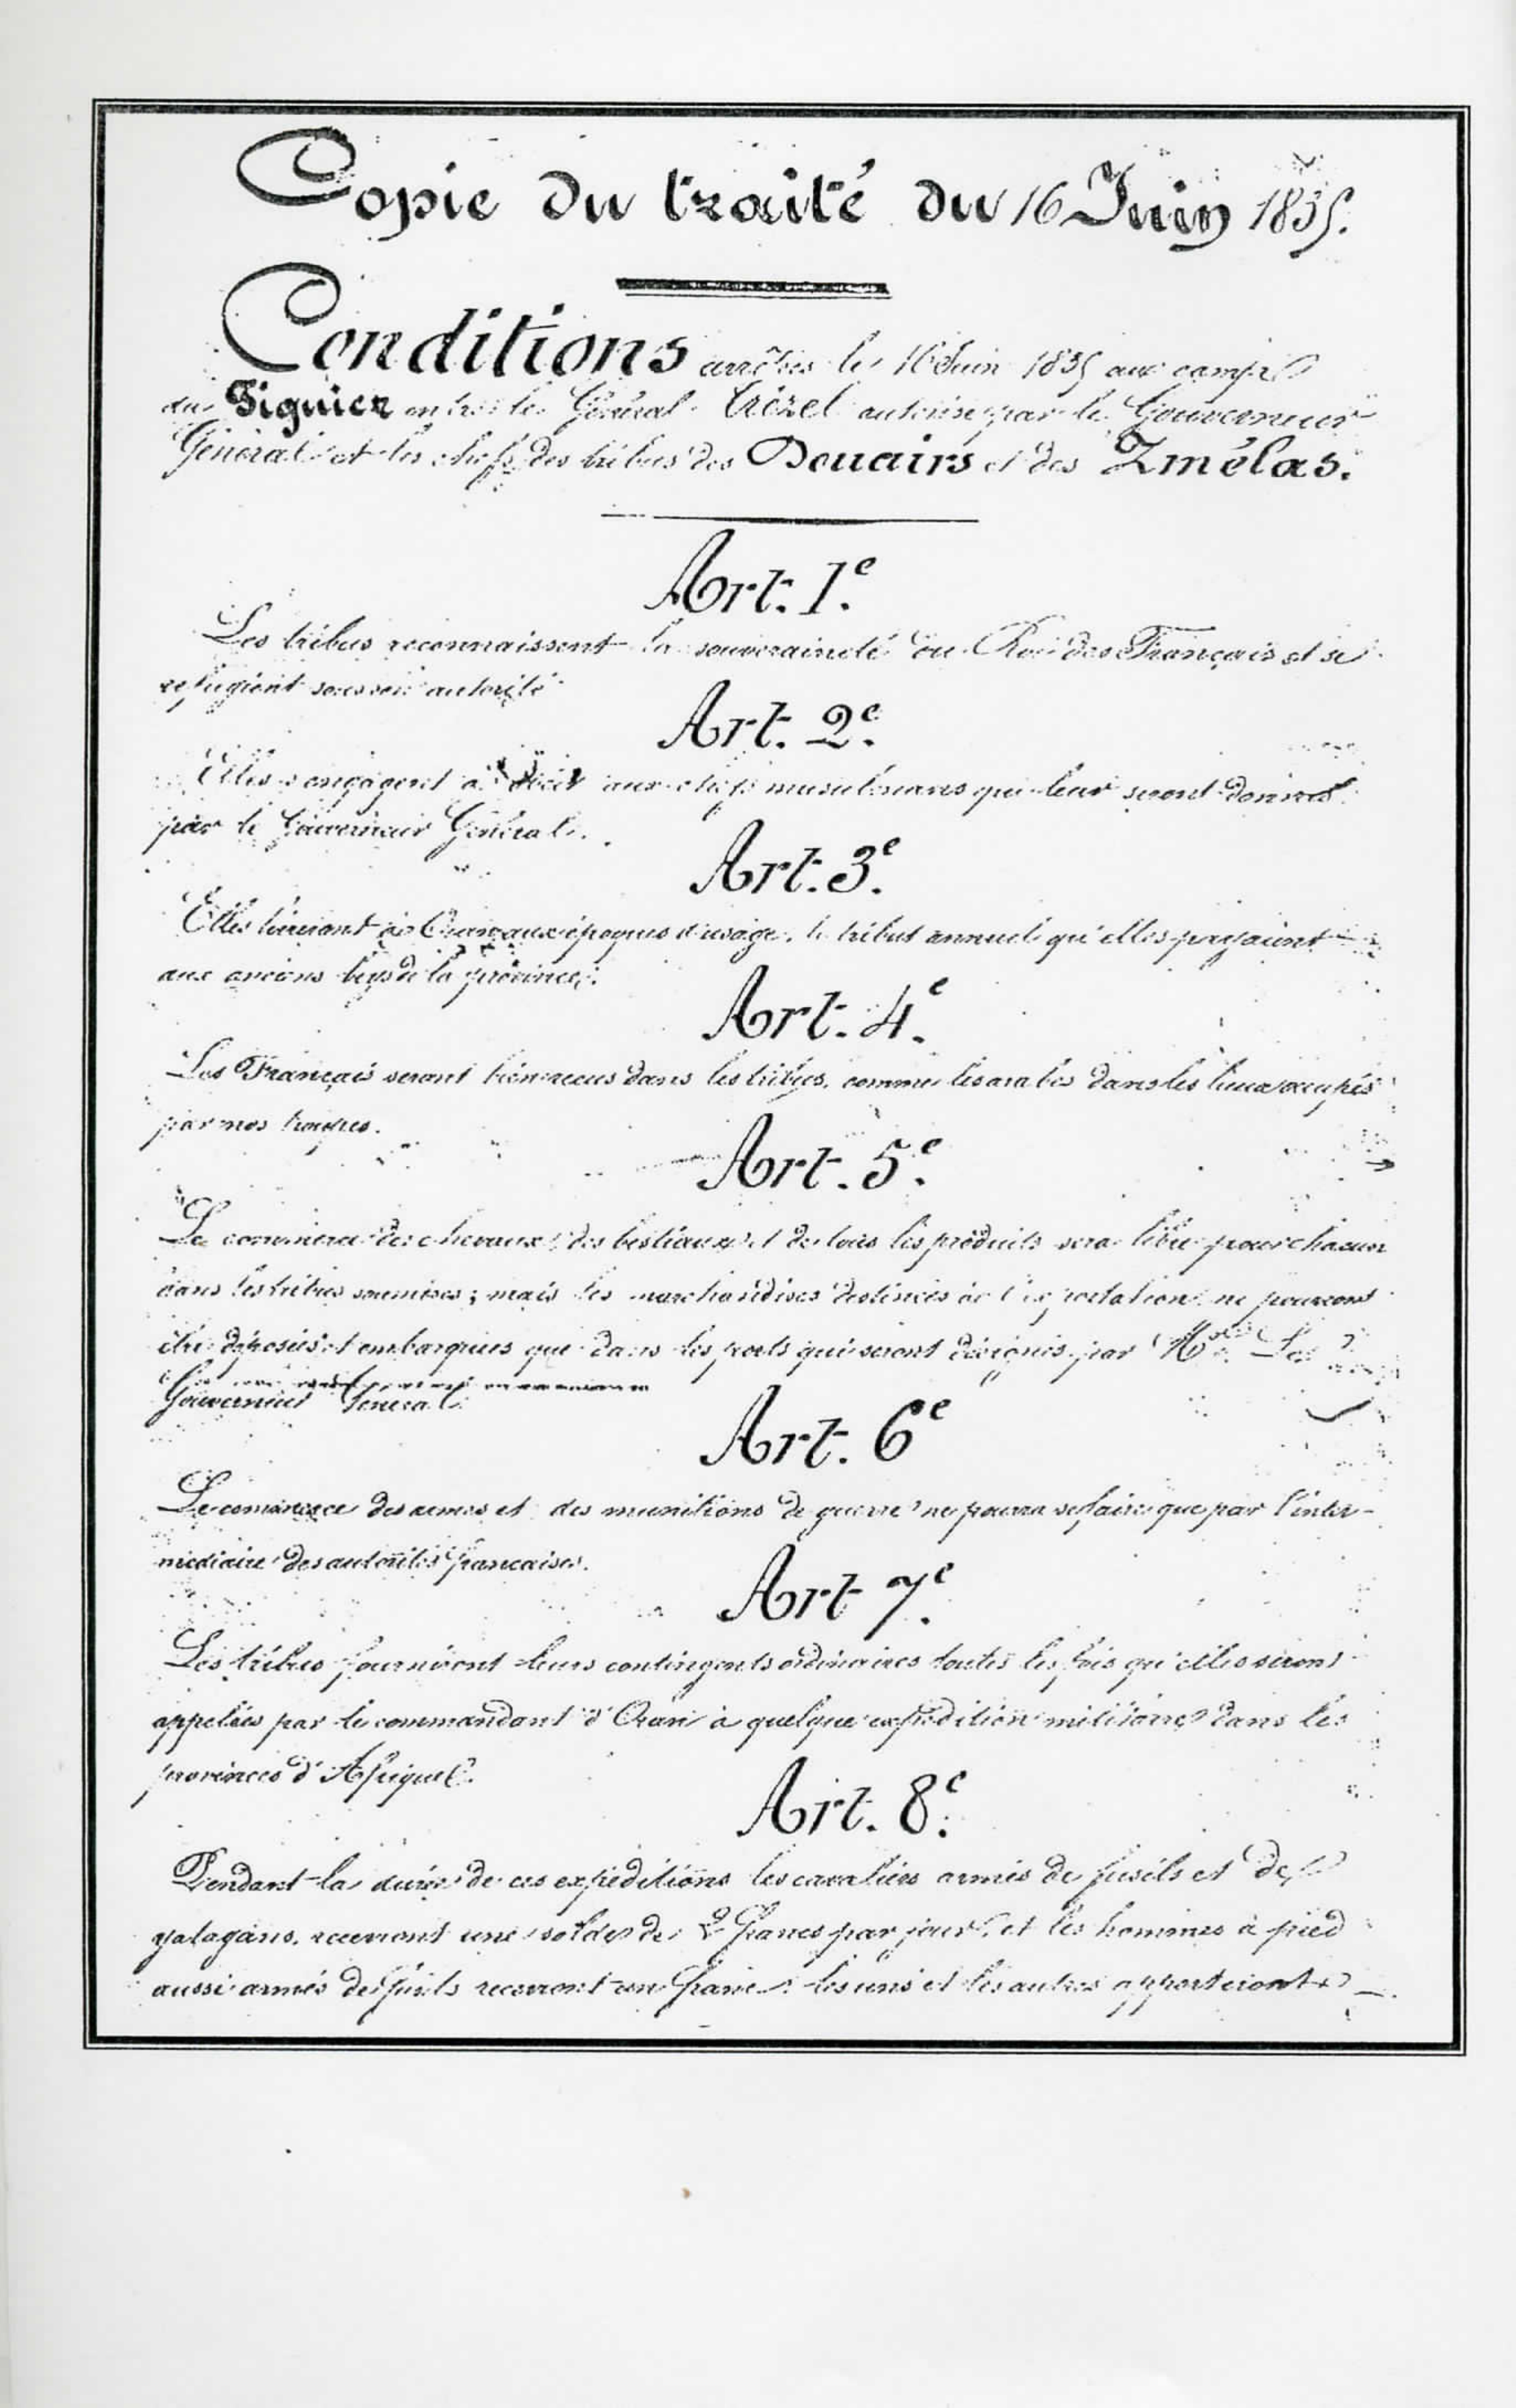 Copie du traité du 16 Juin 1835.
Conditions arrêtées le 16 Juin 1835 au camp
du Figuier entre le Général Trézel autorisé par le Gouverneur
Général et les chefs des tribus des Douairs et des Zmélas.
Art. 1.e
Les tribus reconnaissent la souveraineté du Roi des Français et se
refugient sous son autorité
Art. 2.e
Elles s'engagent à obéir aux chefs musulmans qui leur seront donnés
par le Gouverneur Général.
Art. 3.e
Elles livreront à Oran aux époques d'usage, le tribut annuel qu'elles payaient
aux anciens beys de la province.
Art. 4.e
Les Français seront bien recus dans les tribus, comme les arabes dans les lieux occupés
par nos troupes.
Art. 5.e
Le commerce des chevaux, des bestiaux et de tous les produits sera libre pour chacun
dans les tribus soumises ; mais les marchandises destinées à l'exportation ne pourront
être déposées et embarquées que dans les ports qui seront désignés par Mr. Le
Gouverneur Général
Art. 6e
Le commerce des armes et des munitions de guerre ne pourra se faire que par l'inter-
médiaire des autorités francaises.
Art 7.e
Les tribus fourniront leurs contingents ordinaires toutes les fois qu'elles seront
appelées par le commandant d'Oran à quelque expédition militaire dans les
provinces d'Afrique.
Art. 8.e
Pendant la durée de ces expéditions les cavaliers armés de fusils et de
yatagans, recevront une solde de 2 francs par jour, et les hommes à pied
aussi armés de fusils recevront un franc. les uns et les autres apporteront